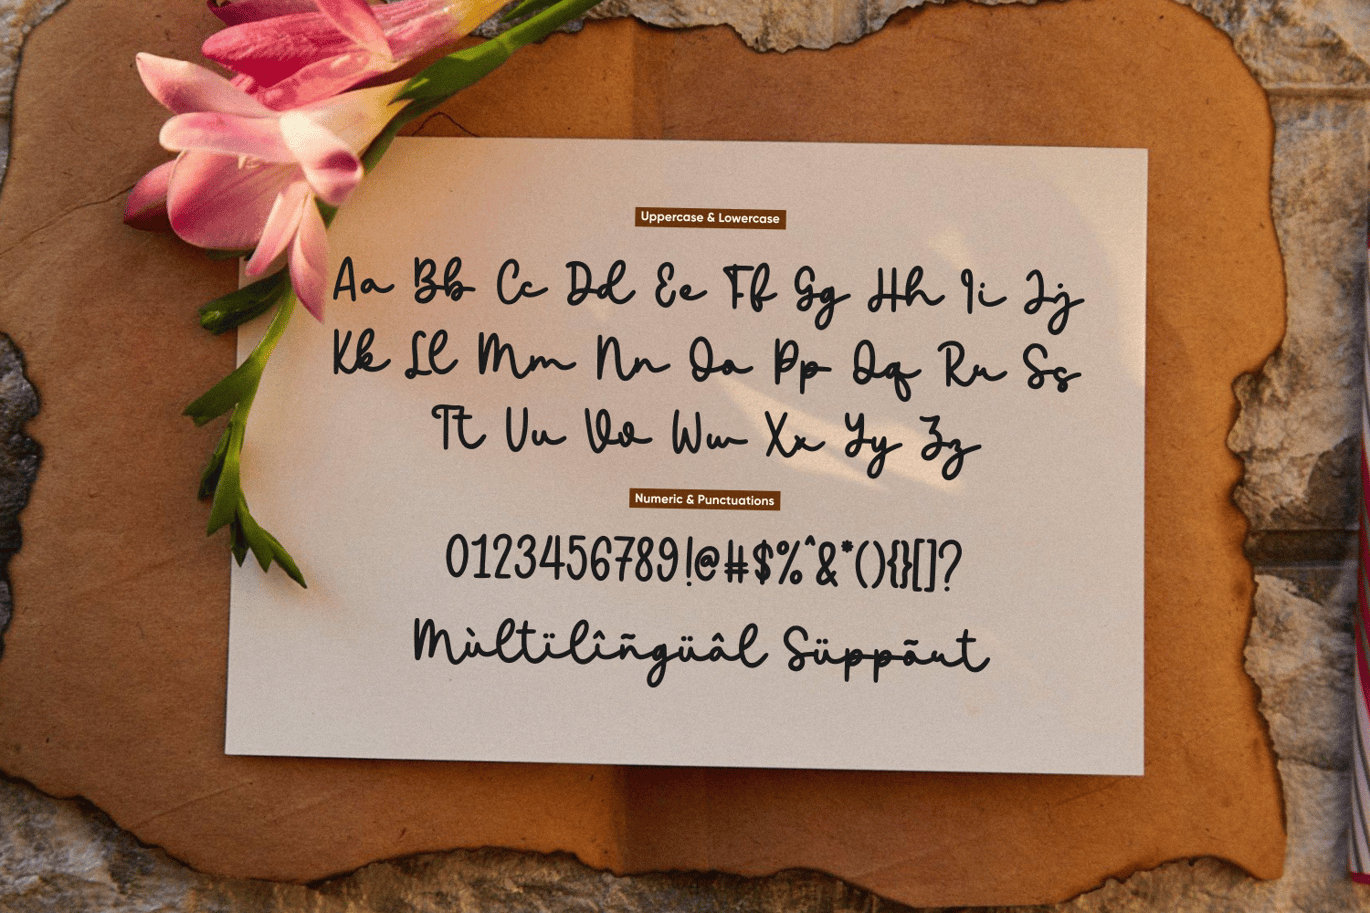 Uppercase & Lowercase
Aa Bb Cc Dd Ee Ff Gg Hh Ii Jj
Kk Ll Mm Nn Oo Pp Qq Rr Ss
Tt Uu Vv Ww Xx Yy Zz
Numeric & Punctuations
0123456789!@#$%^&*(){}[]?
Mùltïlîñgüâl Süppãrt